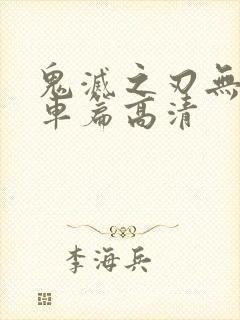 鬼滅之刃無
車篇高清
李海兵